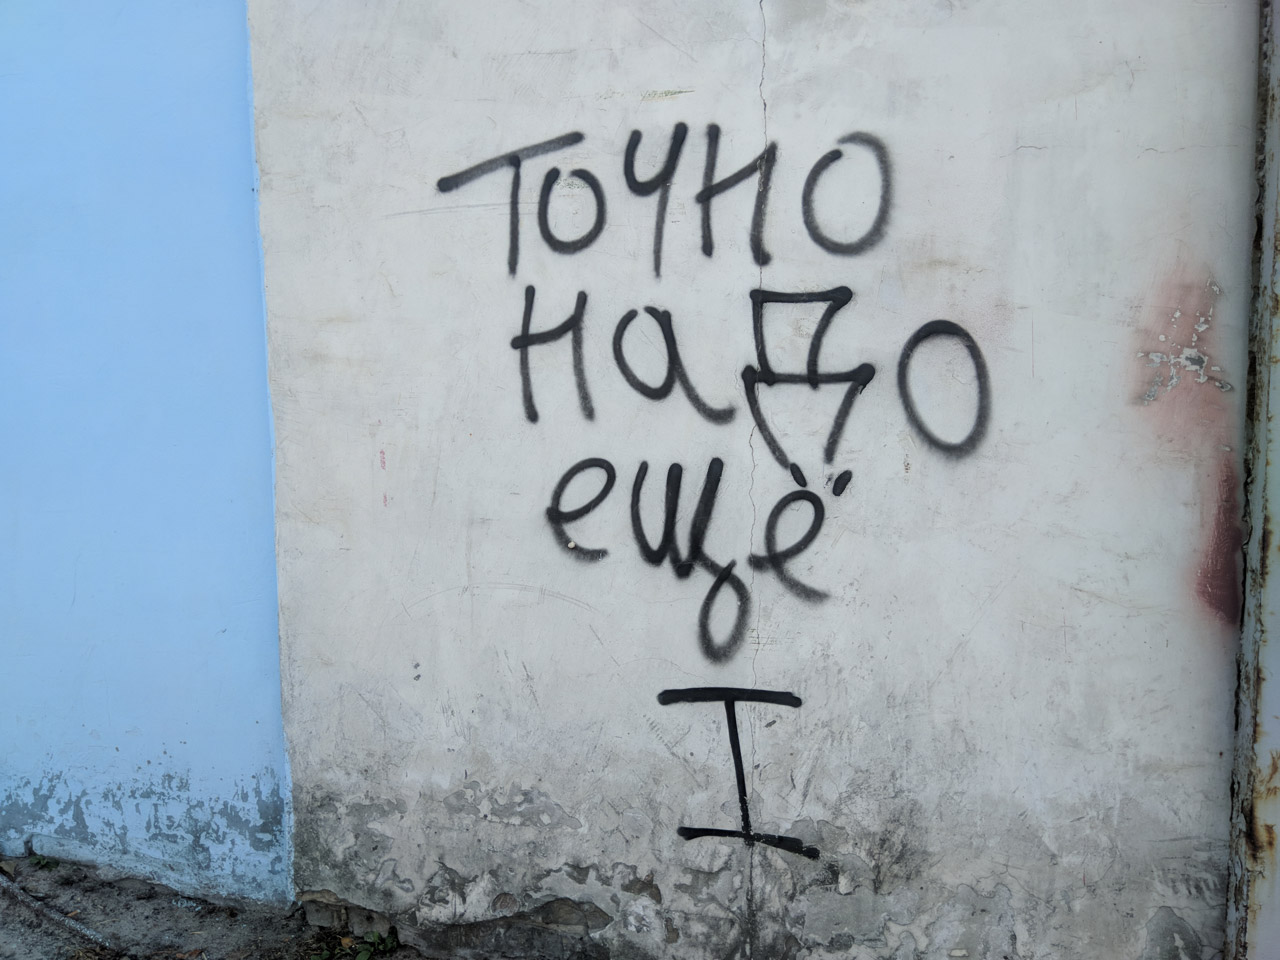 точно
надо
ещё
I